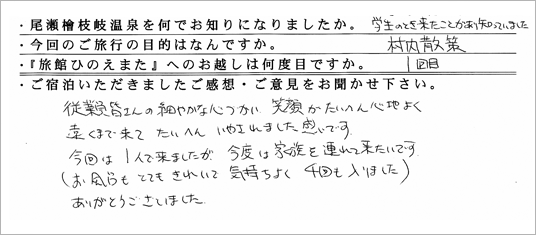 ・尾瀬檜枝岐温泉を何でお知りになりましたか。 学生のとき来たことがあり知っていました
・今回のご旅行の目的はなんですか。 村内散策
・『旅館ひのえまた』へのお越しは何度目ですか。 1回目
・ご宿泊いただきましたご感想・ご意見をお聞かせ下さい。
従業員皆さんの細やかな心づかい 笑顔がたいへん心地よく
遠くまで来て たいへん いやされました思いです。
今回は1人で来ましたが 今度は家族を連れて来たいです。
(お風呂も とても きれいで 気持ちよく 4回も入りました)
ありがとうございました。